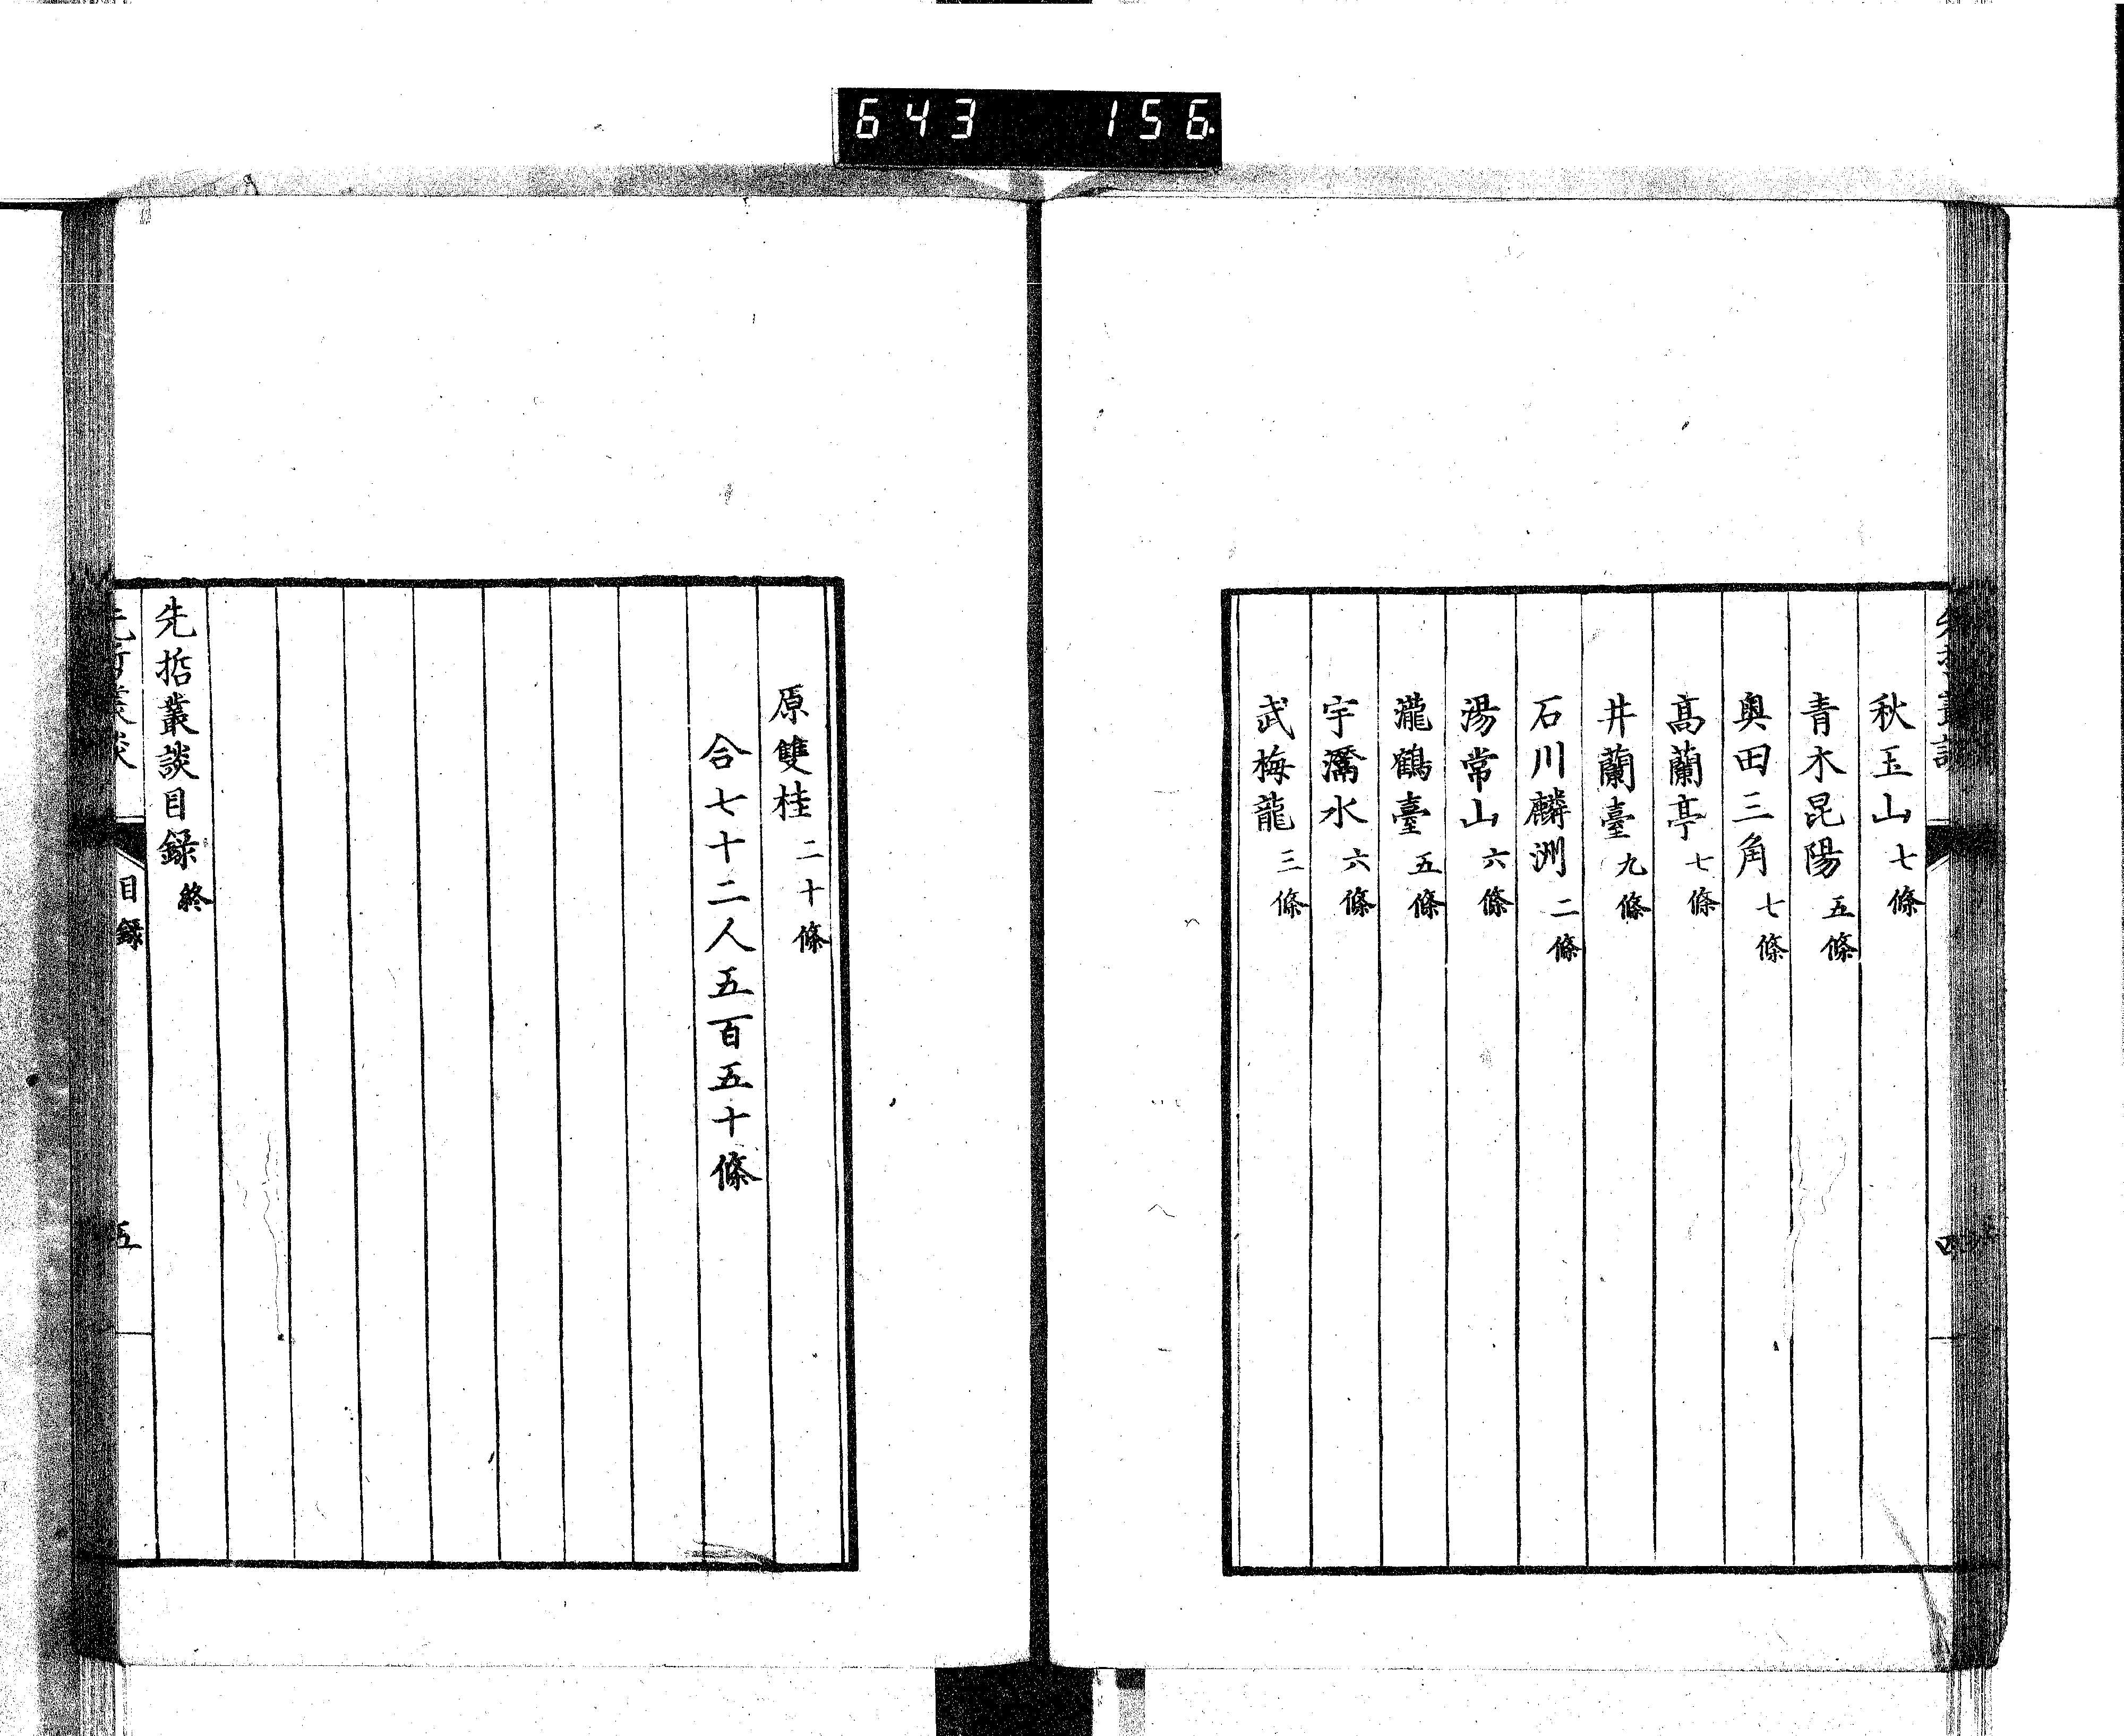 643 156
秋玉山 七條
青木昆陽 五條
奥田三角 七條
高蘭亭 七條
井蘭臺 九條
石川麟洲 二條
湯常山 六條
瀧鶴臺 五條
宇灊水 六條
武梅龍 三條
原雙桂 二十條
合七十二人五百五十條
先哲叢談目録 終
目録
五